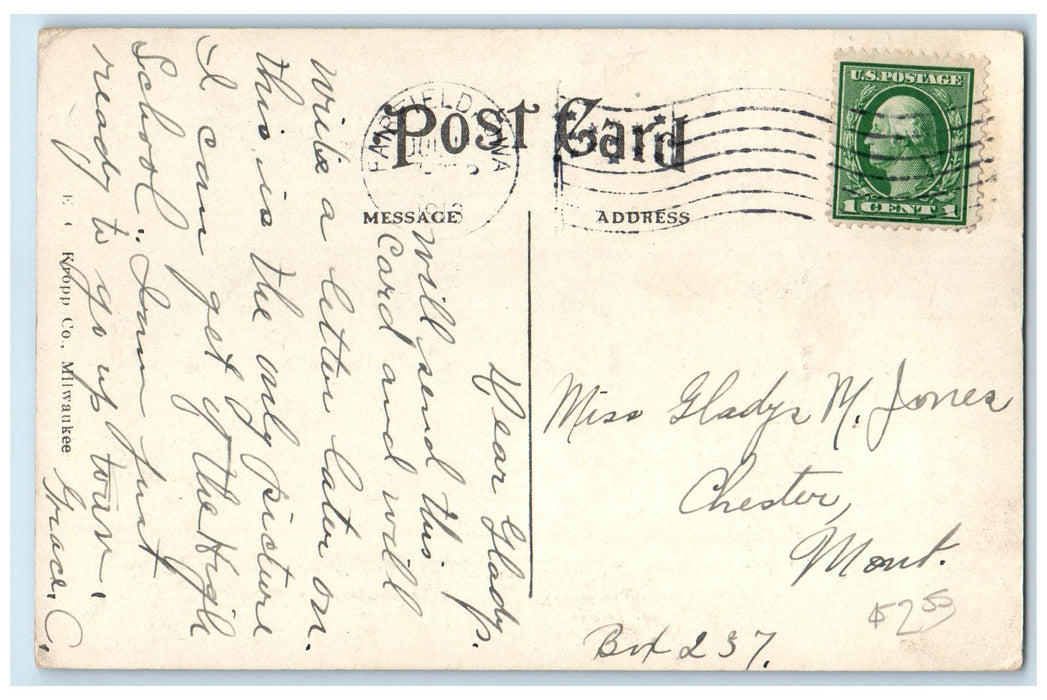 Post Card
FAIRFIELD, IOWA
1913
U.S. POSTAGE
1 CENT 1
MESSAGE
ADDRESS
Dear Gladys.
Will send this
Card and will
write a letter later on.
this is the only picture
I can get of the High
School. I am just
ready to go up town.
Grace. C.
Miss Gladys M. Jones
Chester,
Mont.
Box 237.
$2.50
E. C. Kropp Co., Milwaukee